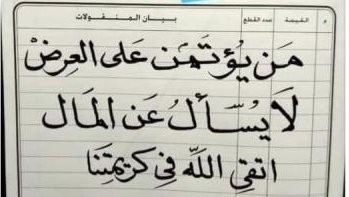 م القيمة عدد القطع بيان المنقولات
مَن يُؤتَمَن عَلى العِرضْ
لَا يُسّأَلُ عَن المَال
اتقِ اللَّه في كَريمتِنَا